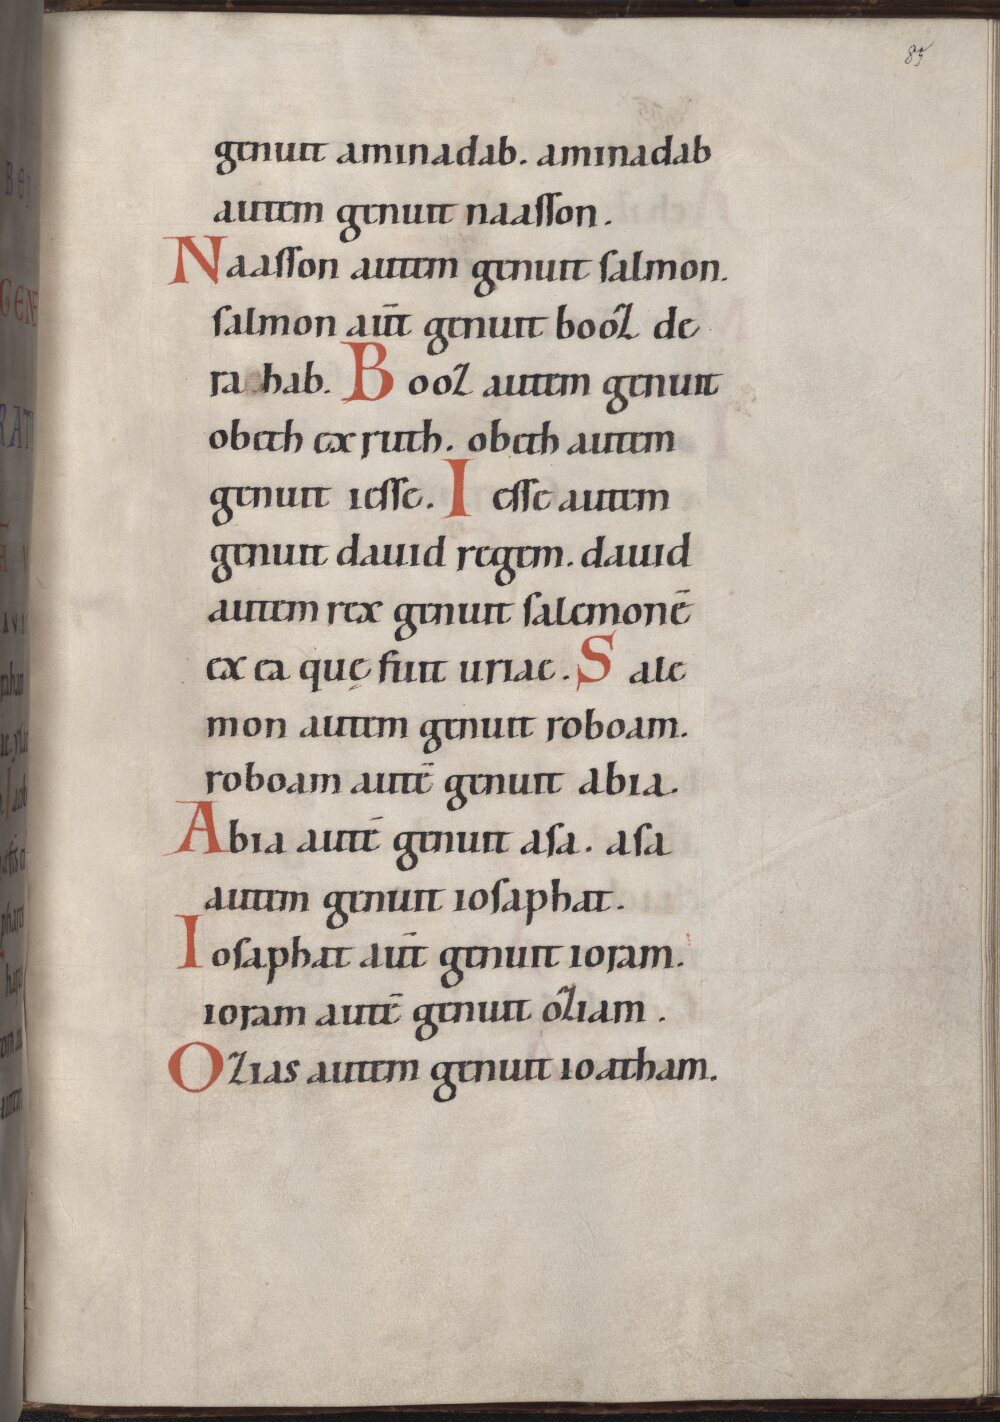 85
genuit aminadab. aminadab
autem genuit naasson.
Naasson autem genuit salmon.
salmon aūt genuit booz de
ra hab. Booz autem genuit
obeth ex ruth. obeth autem
genuit iesse. Iesse autem
genuit dauid regem. dauid
autem rex genuit salemonē
ex ea quę fuit uriae. Sale
mon autem genuit roboam.
roboam autē genuit abia.
Abia autē genuit asa. asa
autem genuit iosaphat.
Iosaphat aūt genuit ioram.
ioram autē genuit oziam.
Ozias autem genuit ioatham.